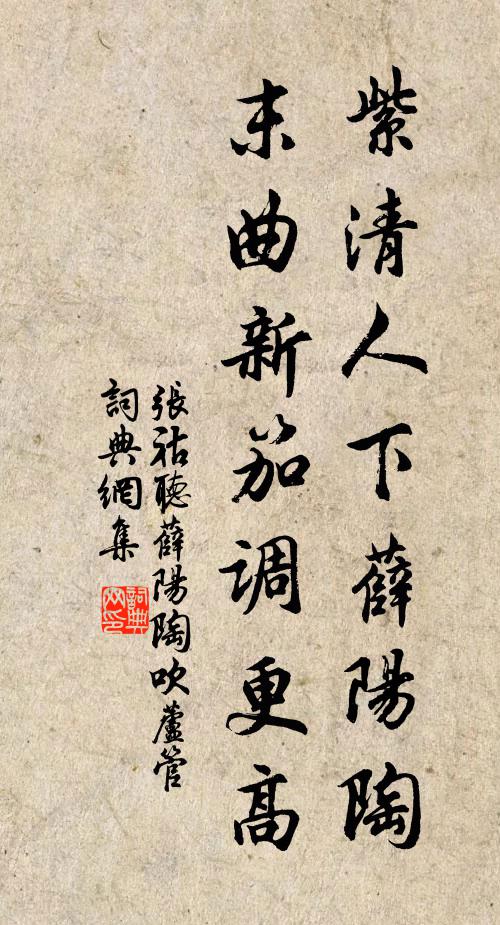 紫清人下薛陽陶
末曲新笳調更高
張祜聽薛陽陶吹蘆管
詞典網集
詞典網印